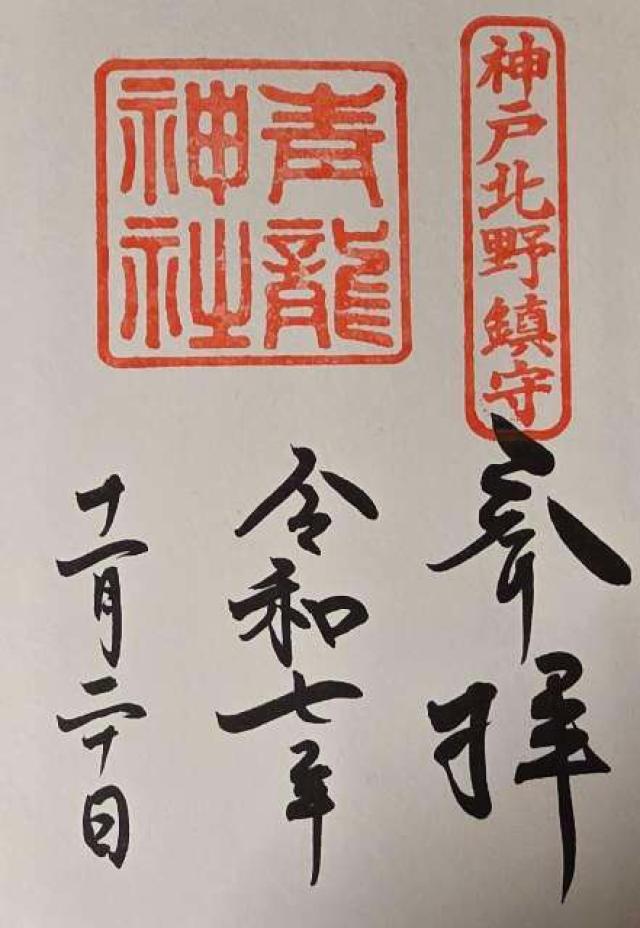 神戸北野鎮守
参拝
青龍
神社
令和七年
十一月二十日